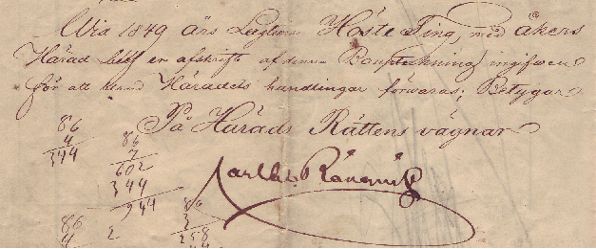 Wid 1849 års Lagtima Höste Ting med Åkers
Härad blef en afskrift af denna Bouptekning ingifwen
för att bland Häradets handlingar förwaras; Betygar
På Härads Rättens vägnar
86
4
344
86
7
602
344
944
86
3
258
86
2